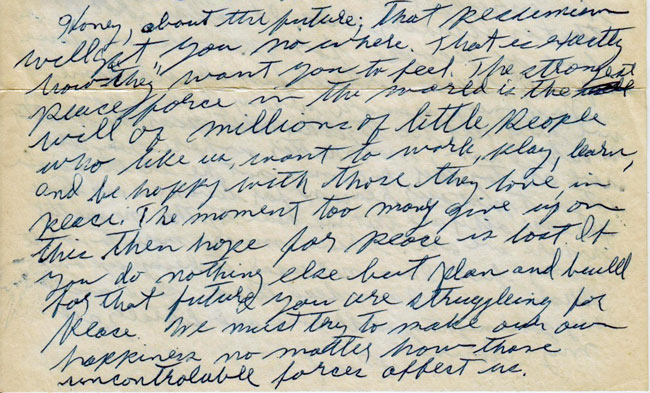 Honey, about the future; that pessimism
will get you no where. That is exactly
how "they" want you to feel. The strongest
peace force in the world is the
will of millions of little people
who like us, want to work, play, learn,
and be happy with those they love in
peace. The moment too many give up on
this then hope for peace is lost. If
you do nothing else but plan and build
for that future you are struggling for
peace. We must try to make our own
happiness no matter how those
uncontrolable forces affect us.